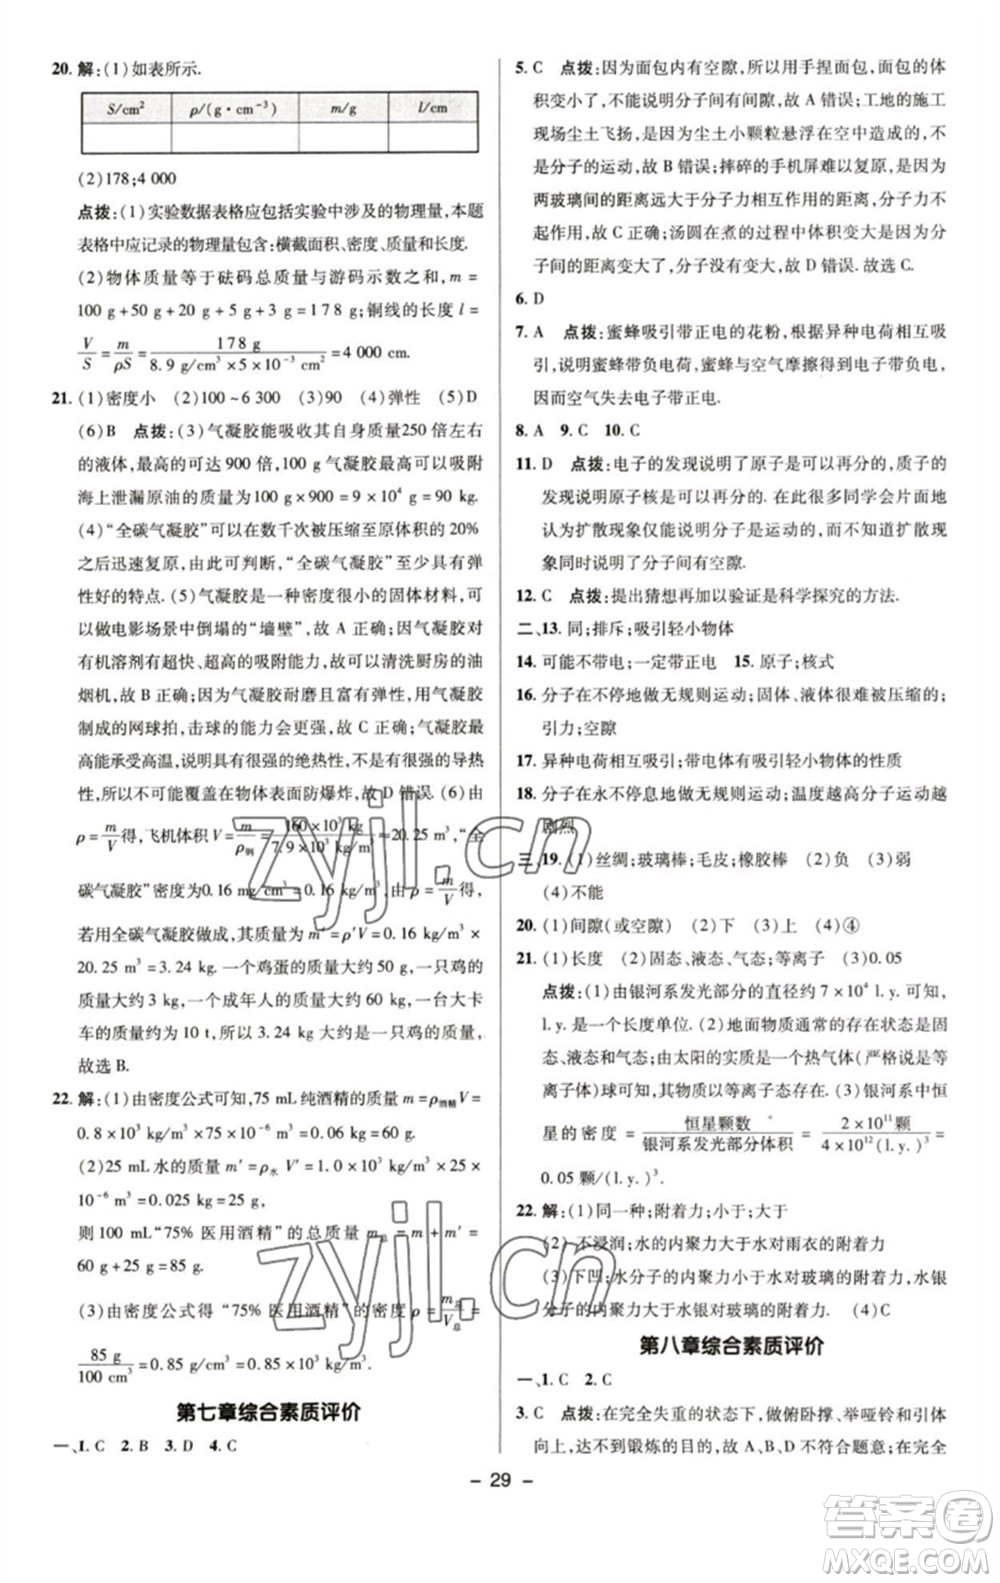 20. 解:(1)如表所示.
S/cm² ρ/(g·cm⁻³) m/g l/cm
(2)178;4 000
点拨:(1)实验数据表格应包括实验中涉及的物理量,本题
表格中应记录的物理量包含:横截面积、密度、质量和长度.
(2)物体质量等于砝码总质量与游码示数之和,m=
100 g+50 g+20 g+5 g+3 g=178 g;铜线的长度 l=
V/S=m/ρS=178 g/(8.9 g/cm³×5×10⁻³ cm²)=4 000 cm.
21. (1)密度小 (2)100~6 300 (3)90 (4)弹性 (5)D
(6)B 点拨:(3)气凝胶能吸收其自身质量250 倍左右
的液体,最高的可达 900 倍,100 g 气凝胶最高可以吸附
海上泄漏原油的质量为 100 g×900=9×10⁴ g=90 kg.
(4)“全碳气凝胶”可以在数千次被压缩至原体积的 20%
之后迅速复原,由此可判断,“全碳气凝胶”至少具有弹
性好的特点.(5)气凝胶是一种密度很小的固体材料,可
以做电影场景中倒塌的“墙壁”,故 A 正确;因为气凝胶对
有机溶剂有超快、超高的吸附能力,所以可清洗厨房的油
烟机,故 B 正确;因为气凝胶耐磨且富有弹性,用气凝胶
制成的网球拍,击球的能力会更强,故 C 正确;气凝胶最
高能承受高温,说明其有很强的绝热性,不具有好的导热
性,不可能覆盖在物体表面防爆炸,故 D 错误.(6)由
ρ=m/V得,飞机体积 V=m/ρ钢=160×10³ kg/7.9×10³ kg/m³≈20.25 m³,“全
碳气凝胶”密度为0.16 mg/cm³=0.16 kg/m³,由 ρ=m/V得,
若用全碳气凝胶做成,其质量为 m′=ρ′V=0.16 kg/m³×
20.25 m³=3.24 kg.一个鸡蛋的质量大约 60 g,一只鸡的质
量大约 3 kg,一个成年人的质量大约 60 kg,一台大卡
车的质量约为 10 t,所以 3.24 kg 大约是一只鸡的质量,
故选 B.
22. 解:(1)由密度公式可知,75 mL纯酒精的质量 m=ρ酒精V=
0.8×10³ kg/m³×75×10⁻⁶ m³=0.06 kg=60 g.
(2)25 mL 水的质量 m′=ρ水 V′=1×10³ kg/m³×25×
10⁻⁶ m³=0.025 kg=25 g,
则 100 mL“75% 医用酒精”的总质量 m总=m+m′=
60 g+25 g=85 g.
(3)由密度公式得“75% 医用酒精”的密度 ρ=m总/V总=
85 g/100 cm³=0.85 g/cm³=0.85×10³ kg/m³.
第七章综合素质评价
一、1. C 2. B 3. D 4. C
5. C 点拨:因为面包内有空隙,所以用手捏面包,面包的体
积变小了,不能说明分子间有间隙,故 A 错误;工地的施工
现场尘土飞扬,是因为尘土小颗粒悬浮在空中造成的,不
是分子的运动,故 B 错误;摔碎的手机屏难以复原,是因为
两玻璃间的距离远大于分子力发生作用的距离,分子力不
起作用,故 C 正确;汤圆在煮的过程中体积变大是因为分
子间的距离变大了,分子没有变大,故 D 错误.故选 C.
6. D
7. A 点拨:蜜蜂吸引带正电的花粉,根据异种电荷相互吸
引,可知蜜蜂带负电荷,蜜蜂与空气摩擦得到电子带负电,
因而空气失去电子带正电.
8. A 9. C 10. C
11. D 点拨:电子的发现说明了原子是可以再分的,质子的
发现说明了原子核是可以再分的.而很多同学会片面地
认为扩散现象仅能说明分子是运动的,而不知道扩散现
象同时说明了分子间有空隙.
12. C 点拨:提出猜想再加以验证是科学探究的方法.
二、13. 同;排斥;吸引轻小物体
14. 可能不带电;一定带正电 15. 原子;核式
16. 分子在不停地做无规则运动;固体、液体很难被压缩的;
引力;空隙
17. 异种电荷相互吸引;带电体有吸引轻小物体的性质
18. 分子在永不停息地做无规则运动;温度越高分子运动越
剧烈
三、19. (1)丝绸;玻璃棒;毛皮;橡胶棒 (2)负 (3)弱
(4)不能
20. (1)间隙(或空隙) (2)下 (3)上 (4)④
21. (1)长度 (2)固态、液态、气态;等离子 (3)0.05
点拨:(1)由银河系发光部分的直径约 7×10⁴ l. y. 可知,
l. y. 是一个长度单位.(2)地面物质通常的存在状态是固
态、液态和气态;由太阳的实质是一个炽热气体(严格说是等
离子体)球可知,其物质应是等离子态.(3)银河系中恒
星的密度=恒星颗数/银河系发光部分体积=2×10¹¹颗/4×10¹²(l. y.)³=
0.05 颗/(l. y.)³.
22. 解:(1)同一种;附着力;小于;大于
(2)不浸润;水的内聚力大于水对雨衣的附着力
(3)下凹;水分子的内聚力小于水对玻璃的附着力,水银
分子的内聚力大于水银对玻璃的附着力. (4)C
第八章综合素质评价
一、1. C 2. C
3. C 点拨:在完全失重的状态下,做俯卧撑、举哑铃和引体
向上,都达不到锻炼的目的,故 A、B、D 不符合题意;在完全
- 29 -
zyjl.cn
zyjl.cn
答案圈
MXQE.COM